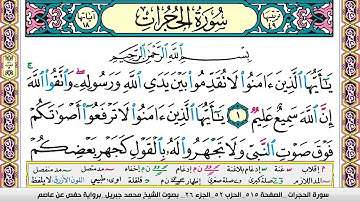 سُورَةُ الحُجُرَاتِ
آياتها ١٨
بِسْمِ اللَّهِ الرَّحْمَٰنِ الرَّحِيمِ
يَٰٓأَيُّهَا ٱلَّذِينَ ءَامَنُوا۟ لَا تُقَدِّمُوا۟ بَيْنَ يَدَىِ ٱللَّهِ وَرَسُولِهِۦ ۖ وَٱتَّقُوا۟ ٱللَّهَ ۚ
إِنَّ ٱللَّهَ سَمِيعٌ عَلِيمٌ ١ يَٰٓأَيُّهَا ٱلَّذِينَ ءَامَنُوا۟ لَا تَرْفَعُوٓا۟ أَصْوَٰتَكُمْ
فَوْقَ صَوْتِ ٱلنَّبِىِّ وَلَا تَجْهَرُوا۟ لَهُۥ بِٱلْقَوْلِ كَجَهْرِ بَعْضِكُمْ
سورة الحجرات الصفحة ٥١٥ الحزب ٥٢ الجزء ٢٦ بصوت الشيخ محمد جبريل برواية حفص عن عاصم